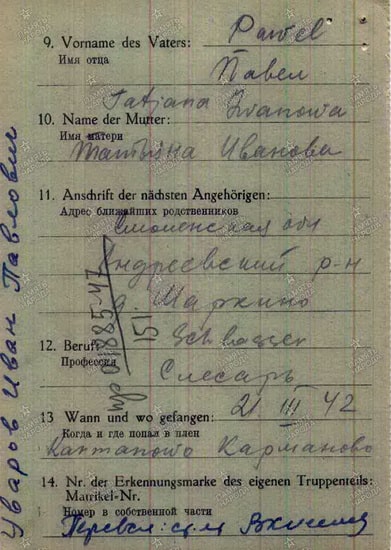 9. Vorname des Vaters: Pawel
Имя отца
Павел
Tatjana Iwanowa
10. Name der Mutter:
Имя матери
Татьяна Иванова
11. Anschrift der nächsten Angehörigen:
Адрес ближайших родственников
Смоленская обл
Андреевский р-н
д. Маркино
12. Beruf: Schlosser
Профессия
Слесарь
13 Wann und wo gefangen: 21 III 42
Когда и где попал в плен
Кармановo
14. Nr. der Erkennungsmarke des eigenen Truppenteils:
Matrikel-Nr.
Номер в собственной части
Уваров Иван Павлович
01885-47
151.